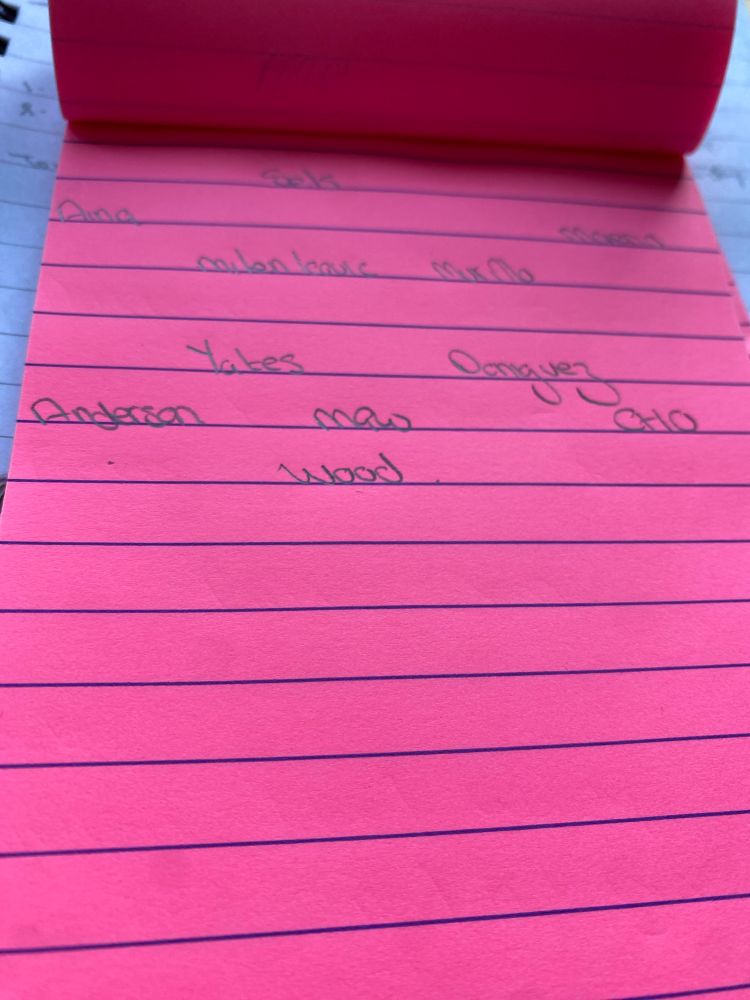 Sels
Aina
Milenkovic Murillo
Yates Dominguez
Anderson MGW CHO
Wood